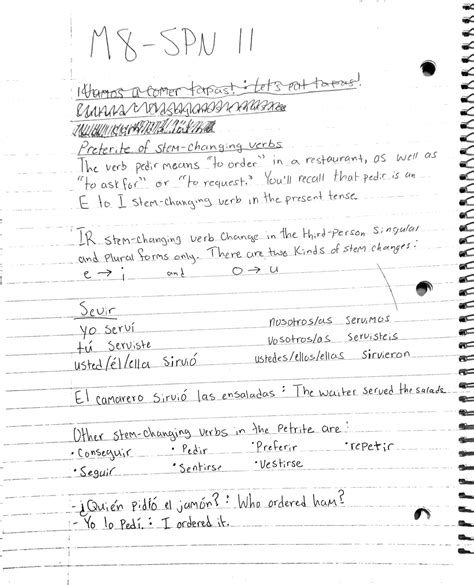 M8-SPN 11
¡Vamos a comer tapas! : Let's eat tapas!
Preterite of stem-changing verbs
The verb pedir means "to order" in a restaurant, as well as
"to ask for" or "to request." You'll recall that pedir is an
E to I stem-changing verb in the present tense.
IR stem-changing verb change in the third-person singular
and plural forms only. There are two kinds of stem changes:
e → i and o → u
Sevir
yo serví nosotros/as servimos
tú serviste vosotros/as servisteis
usted/él/ella sirvió ustedes/ellos/ellas sirvieron
El camarero sirvió las ensaladas : The waiter served the salads.
Other stem-changing verbs in the Petrite are:
• Conseguir • Pedir • Preferir • repetir
• Seguir • Sentirse • Vestirse
- ¿Quién pidió el jamón? : Who ordered ham?
- Yo lo Pedí. : I ordered it.